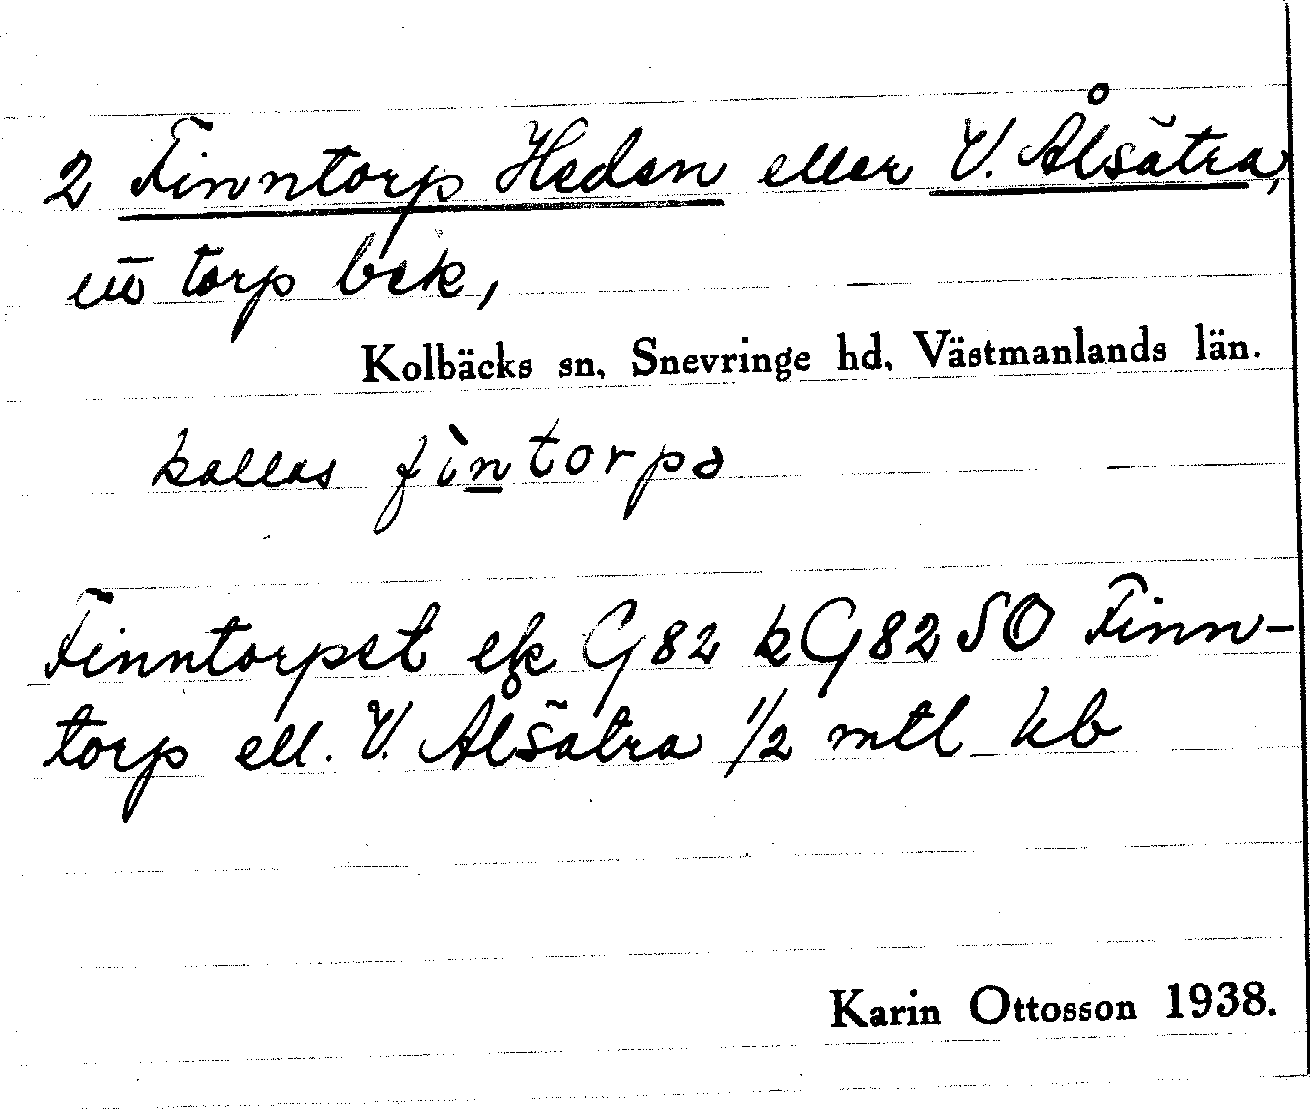 2 Finntorp Heden eller V. Ålsätra,
torp bek,
Kolbäcks sn, Snevringe hd, Västmanlands län.
kallas fìntorpa
Finntorpet ek G82 kG82 SO Finn-
torp ell. V. Ålsätra 1/2 mtl kb
Karin Ottosson 1938.